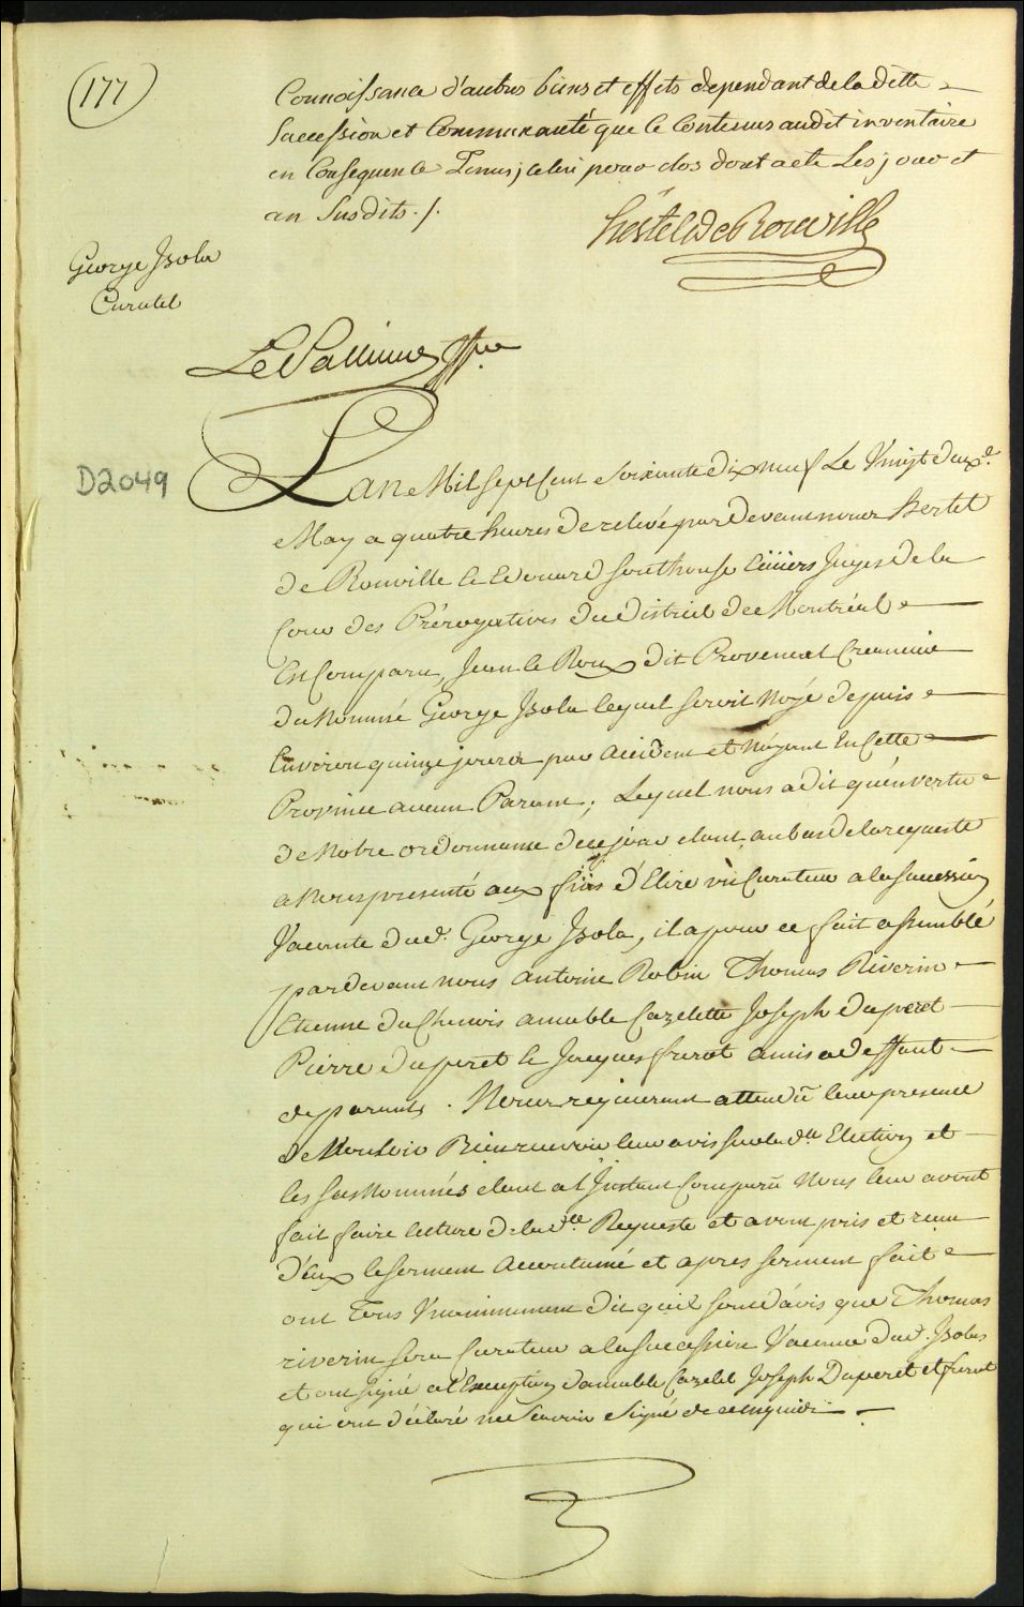 (177)
Connoissance d'autres biens et effets dependant de la ditte
Succession et Communauté que le Contenus audit inventaire
en Consequence Tenus, celui pour clos dont acte Les jour et
an Susdits ./.
hertel De Rouville
George Jsola
Curatel
Le Pallieur Gffier
D2049
Lan Mil sept Cent Soixante Dix neuf Le Vingt deux d.
May a quatre heures De relevé par Devant nous Hertel
de Rouville & Edouard Southouse Ecuiers Juges De la
Cour des Prérogatives Du District De Montréal
Est Comparu, Jean le Roux Dit Provencal Creancier
du Nommé George Jsola lequel seroit Noyé depuis
Environ quinze jours par accident et N'ayant En Cette
Province aucun Parent; Lequel nous a dit qu'en vertu
de Notre ordonnance de ce jour etant au bas de la requeste
a Nous presenté aux fins d'Elire un Curateur a la Succession
Vacante du d. George Jsola, il a pour ce fait assemblé
pardevant nous Antoine Robin Thomas Riverin
Etienne DuChenois amable Cazelette Joseph duperet
Pierre duperet & Jacques furot amis a deffaut
de parents. Nous requerant attendû leur presence
De Vouloir Bien recevoir leur avis sur la dte Election et
les susNommés etant a l'Jnstant Comparû Nous leur avons
fait faire lecture de la dte Requeste et avons pris et recu
D'eux le serment accoutumé et apres serment fait
ont Tous Vnanimement dit qu'il sont d'avis que Thomas
riverin sera Curateur a la Succession Vacante du d. Jsola
et ont signé a l'Exception d'amable Cazelet Joseph Duperet et furot
qui ont déclaré ne Scavoir Signé de ce enquis